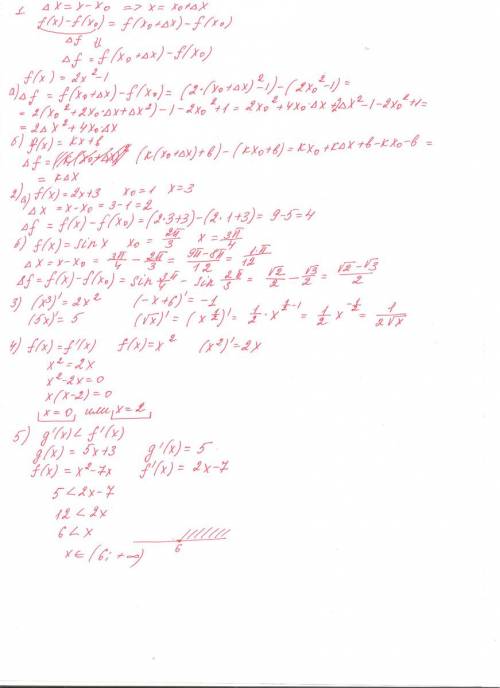 1. Δx = x - x₀ => x = x₀+Δx
f(x) - f(x₀) = f(x₀+Δx) - f(x₀)
Δf ⇓
Δf = f(x₀+Δx) - f(x₀)
f(x) = 2x² - 1
а) Δf = f(x₀+Δx) - f(x₀) = (2·(x₀+Δx)² - 1) - (2x₀² - 1) =
= 2(x₀² + 2x₀·Δx + Δx²) - 1 - 2x₀² + 1 = 2x₀² + 4x₀·Δx + 2Δx² - 1 - 2x₀² + 1 =
= 2Δx² + 4x₀Δx
б) f(x) = kx + в
Δf = (k(x₀+Δx) + в) - (kx₀ + в) = kx₀ + kΔx + в - kx₀ - в =
= kΔx
2) а) f(x) = 2x + 3 x₀ = 1 x = 3
Δx = x - x₀ = 3 - 1 = 2
Δf = f(x) - f(x₀) = (2·3 + 3) - (2·1 + 3) = 9 - 5 = 4
б) f(x) = sin x x₀ = 2π/3 x = 3π/4
Δx = x - x₀ = 3π/4 - 2π/3 = (9π - 8π)/12 = 1·π/12
Δf = f(x) - f(x₀) = sin 3π/4 - sin 2π/3 = √2/2 - √3/2 = (√2 - √3)/2
3) (x³)' = 2x² (-x+6)' = -1
(5x)' = 5 (√x)' = (x^½)' = ½·x^(½-1) = ½ x^(-½) = 1/(2√x)
4) f(x) = f'(x) f(x) = x² (x²)' = 2x
x² = 2x
x² - 2x = 0
x(x-2) = 0
x = 0, или x = 2
5) g'(x) < f'(x)
g(x) = 5x + 3 g'(x) = 5
f(x) = x² - 7x f'(x) = 2x - 7
5 < 2x - 7
12 < 2x
6 < x
6
x ∈ (6; +∞)